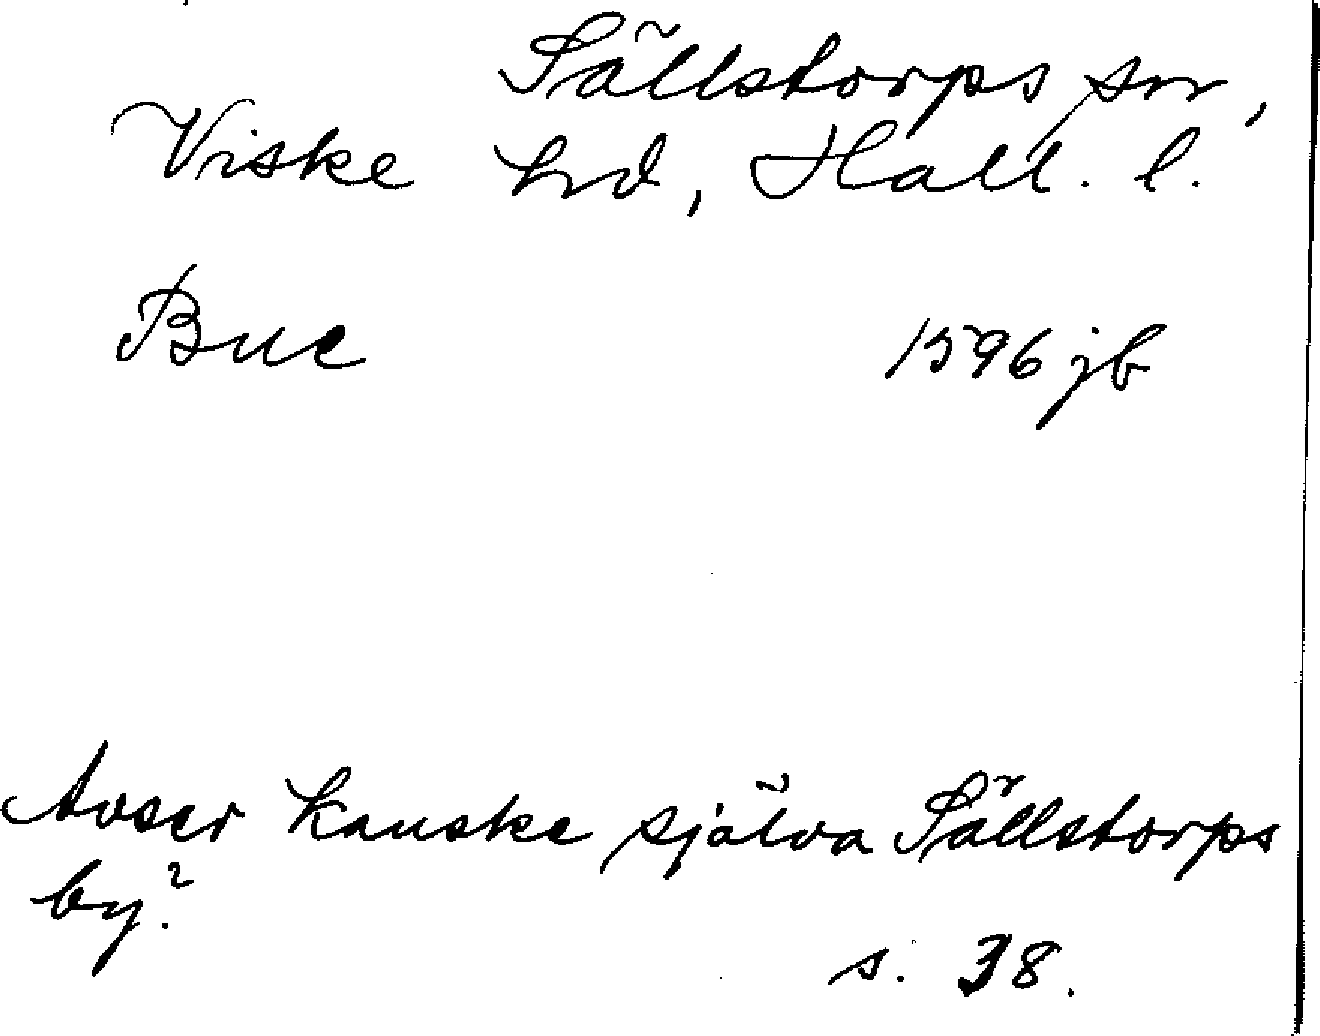 Sällstorps sn,
Viske hd, Hall. l.
Bue 1596 jb
Avser kanske själva Sällstorps
by?
s. 38.